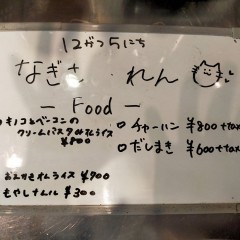 12がつ5にち
なぎさ れん
— Food —
キノコとベーコンの
クリームパスタorオムライス
¥800
おえかきオムライス ¥900
もやしナムル ¥300
チャーハン ¥800+tax
だしまき ¥600+tax